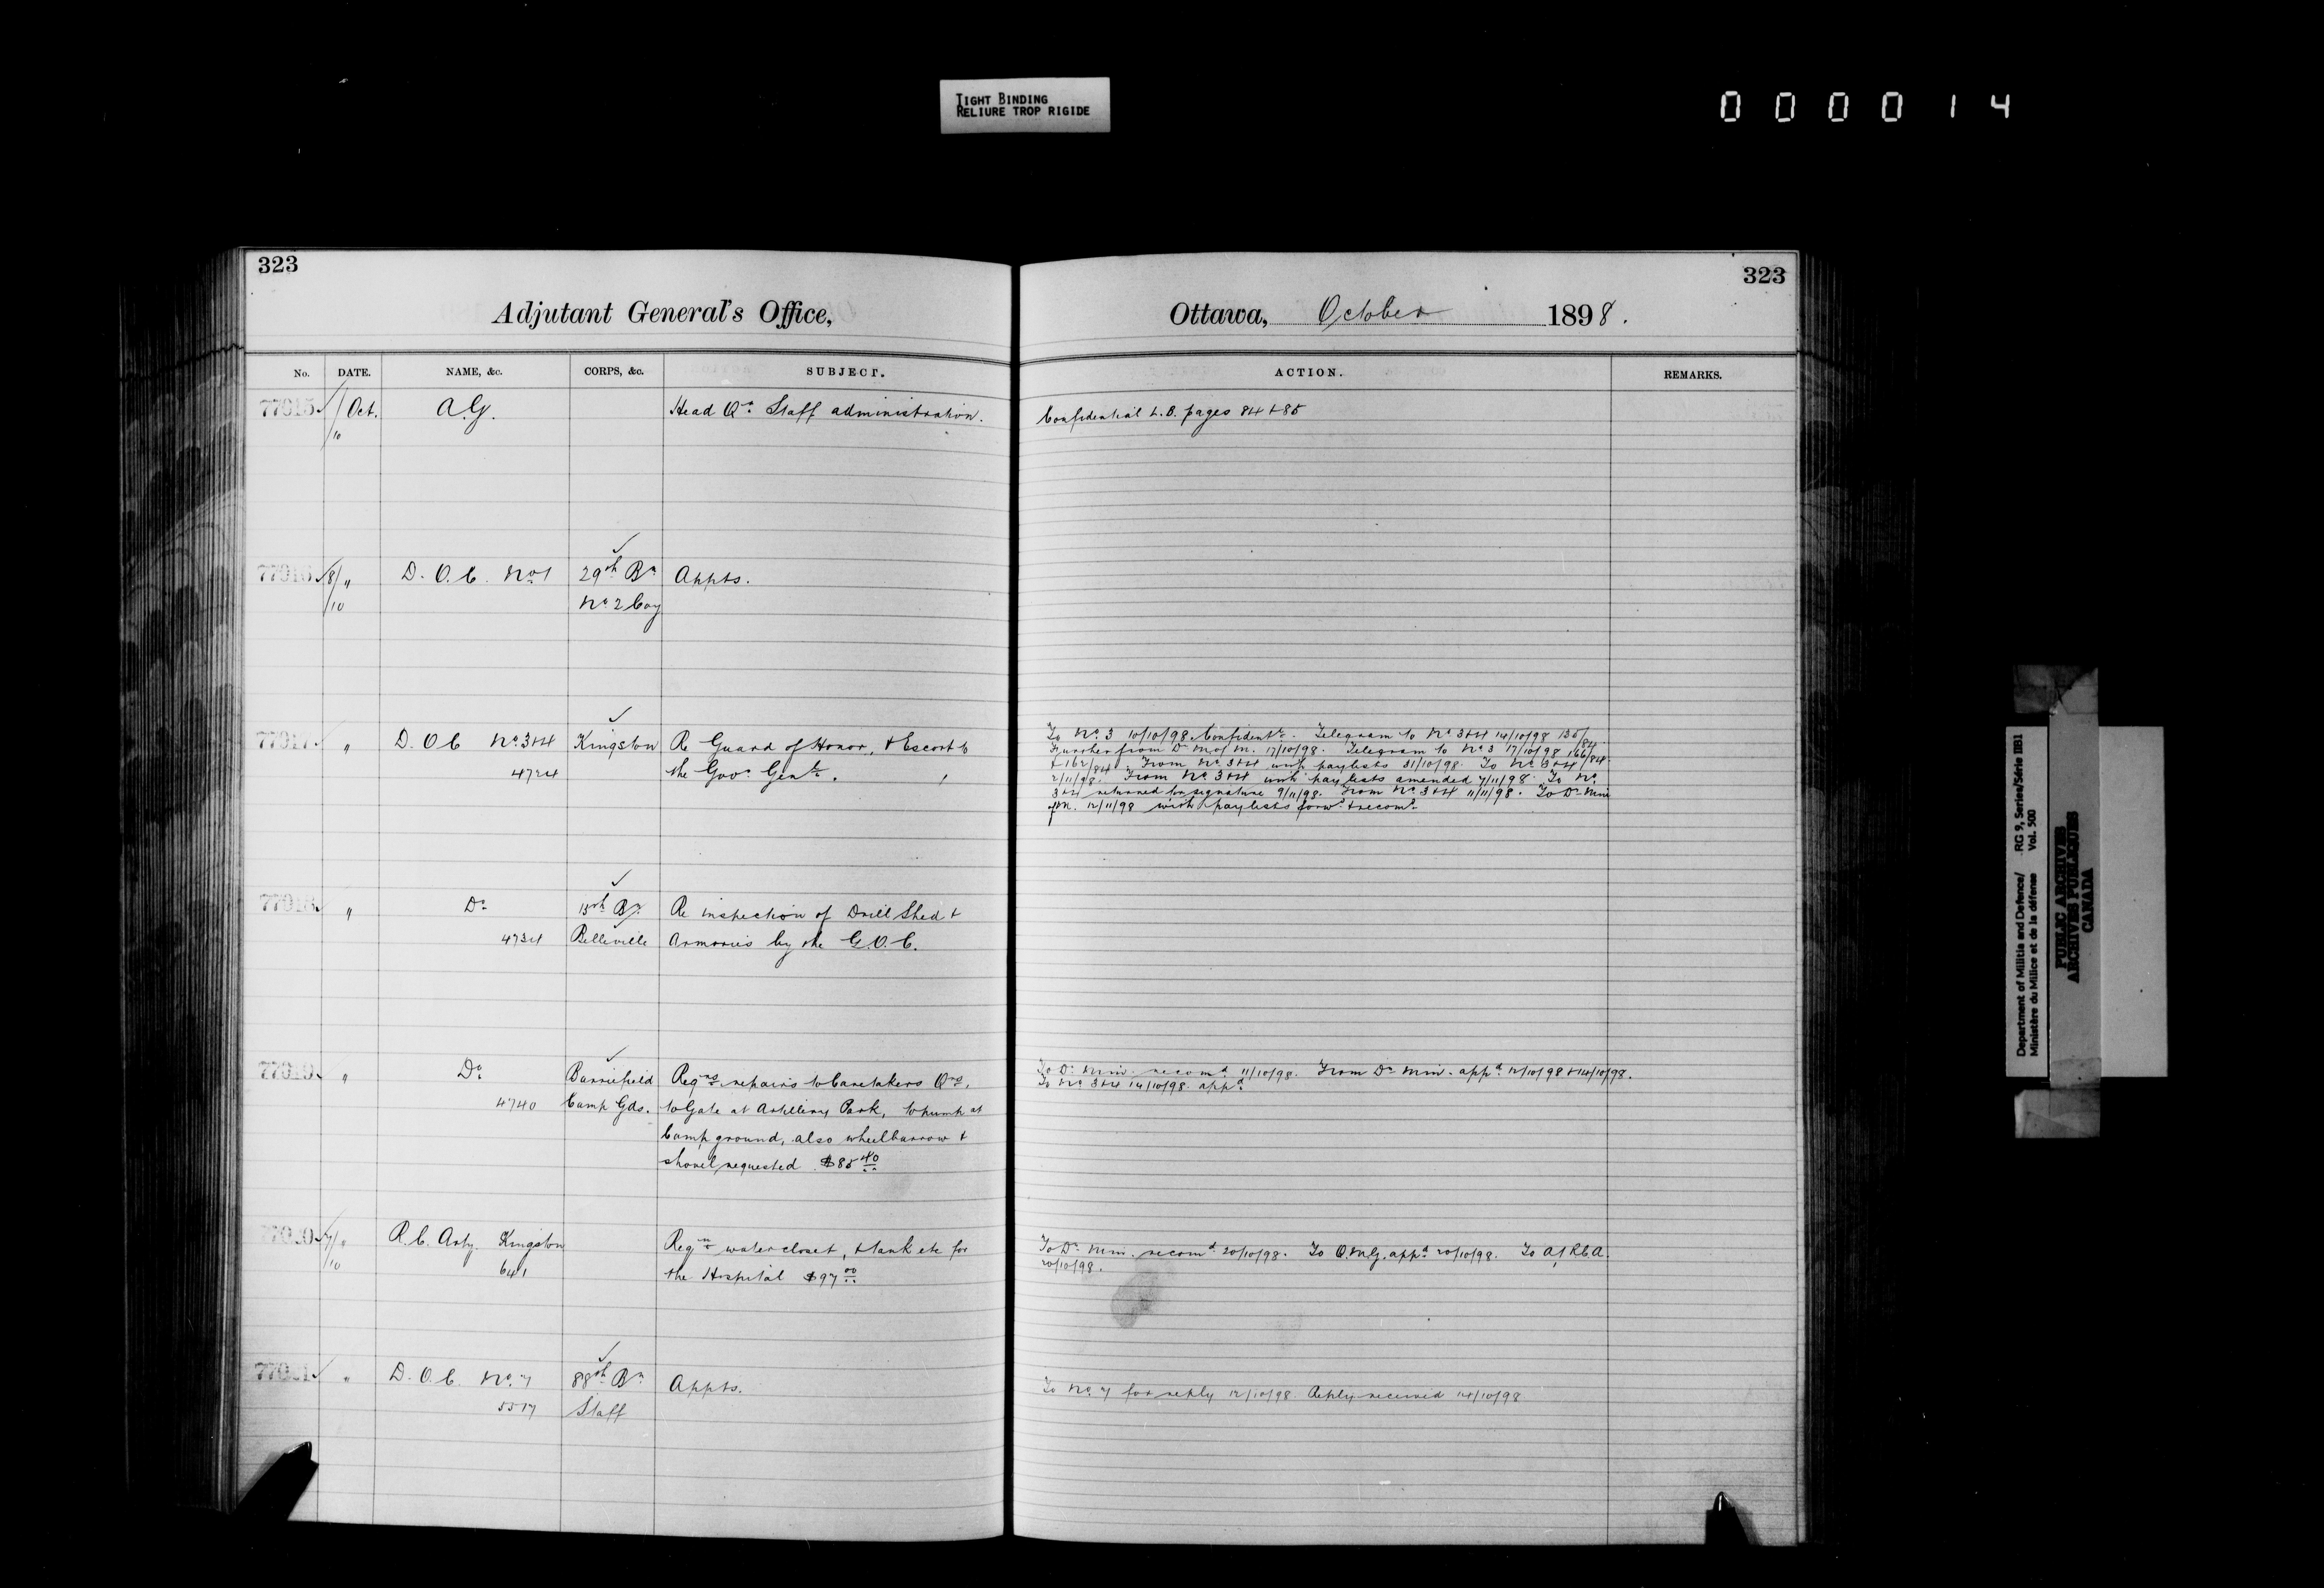 TIGHT BINDING
RELIURE TROP RIGIDE
000014
323
323
Adjutant General's Office,
Ottawa, October 1898.
No. DATE. NAME, &c. CORPS, &c. SUBJECT. ACTION. REMARKS.
77015 1/10 Oct. A.G. Head Qrs Staff administration. Confidential L.B. pages 84 + 85
77016 8/10 " D.O.C. No 1 29th Bn Appts.
No 2 Coy
77017 " D.O.C No 3+4 Kingston Re Guard of Honor, + Escort to
4724 the Govr Genl.
To No 3 10/10/98 Confidentl. Telegram to No 3+4 14/10/98 135/84.
Further from Dr M of M. 17/10/98. Telegram to No 3 17/10/98, 166/84.
+ 162/84. From No 3+4 with paylists 31/10/98. To No 3+4
2/11/98. From No 3+4 with paylists amended 7/11/98. To No
3+4 returned for signature 9/11/98. From No 3+4 11/11/98. To Dr Min
of M. 12/11/98 with paylists forwd + recomd.
77018 " Do 15th Bn Re inspection of Drill Shed +
4734 Belleville Armories by the G.O.C.
77019 " Do Barriefield Reqns repairs to Caretakers Qrs,
4740 Camp Gds. to Gate at Artillery Park, to pump at
Camp ground, also wheelbarrow +
shovel requested $85 40
To Dr Min. recomd 11/10/98. From Dr Min. appd 12/10/98 + 14/10/98.
To No 3+4 14/10/98 appd
77020 7/10 " R.C. Arty. Kingston Reqn water closet, + tank etc for
641 the Hospital $97 00
To Dr Min. recomd 20/10/98. To Q.M.G. appd 20/10/98. To A, R.C.A.
20/10/98.
77021 " D.O.C. No. 7 88th Bn Appts.
5517 Staff
To No. 7 for reply 12/10/98. Reply received 14/10/98
Department of Militia and Defence/ RG 9, Series/Série IIB1
Ministère du Milice et de la défense Vol. 500
PUBLIC ARCHIVES
ARCHIVES PUBLIQUES
CANADA